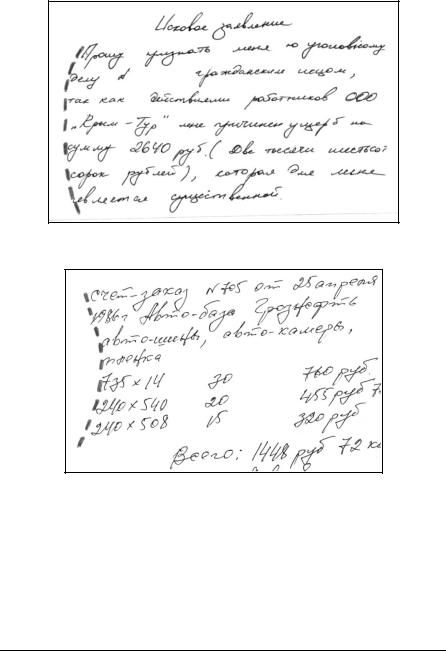 Исковое заявление
Прошу признать меня по уголовному
делу № гражданским истцом,
так как действиями работников ООО
„Крым-Тур" мне причинен ущерб на
сумму 2640 руб. (Две тысячи шестьсот
сорок рублей), которая для меня
является существенной.
Счет-заказ №705 от 25 апреля
1986г Авто-база Грознефть
авто-шины, авто-камеры,
735 × 14 30 760 руб.
240 × 540 20 455 руб 7
240 × 508 15 320 руб
Всего: 1448 руб 72 к